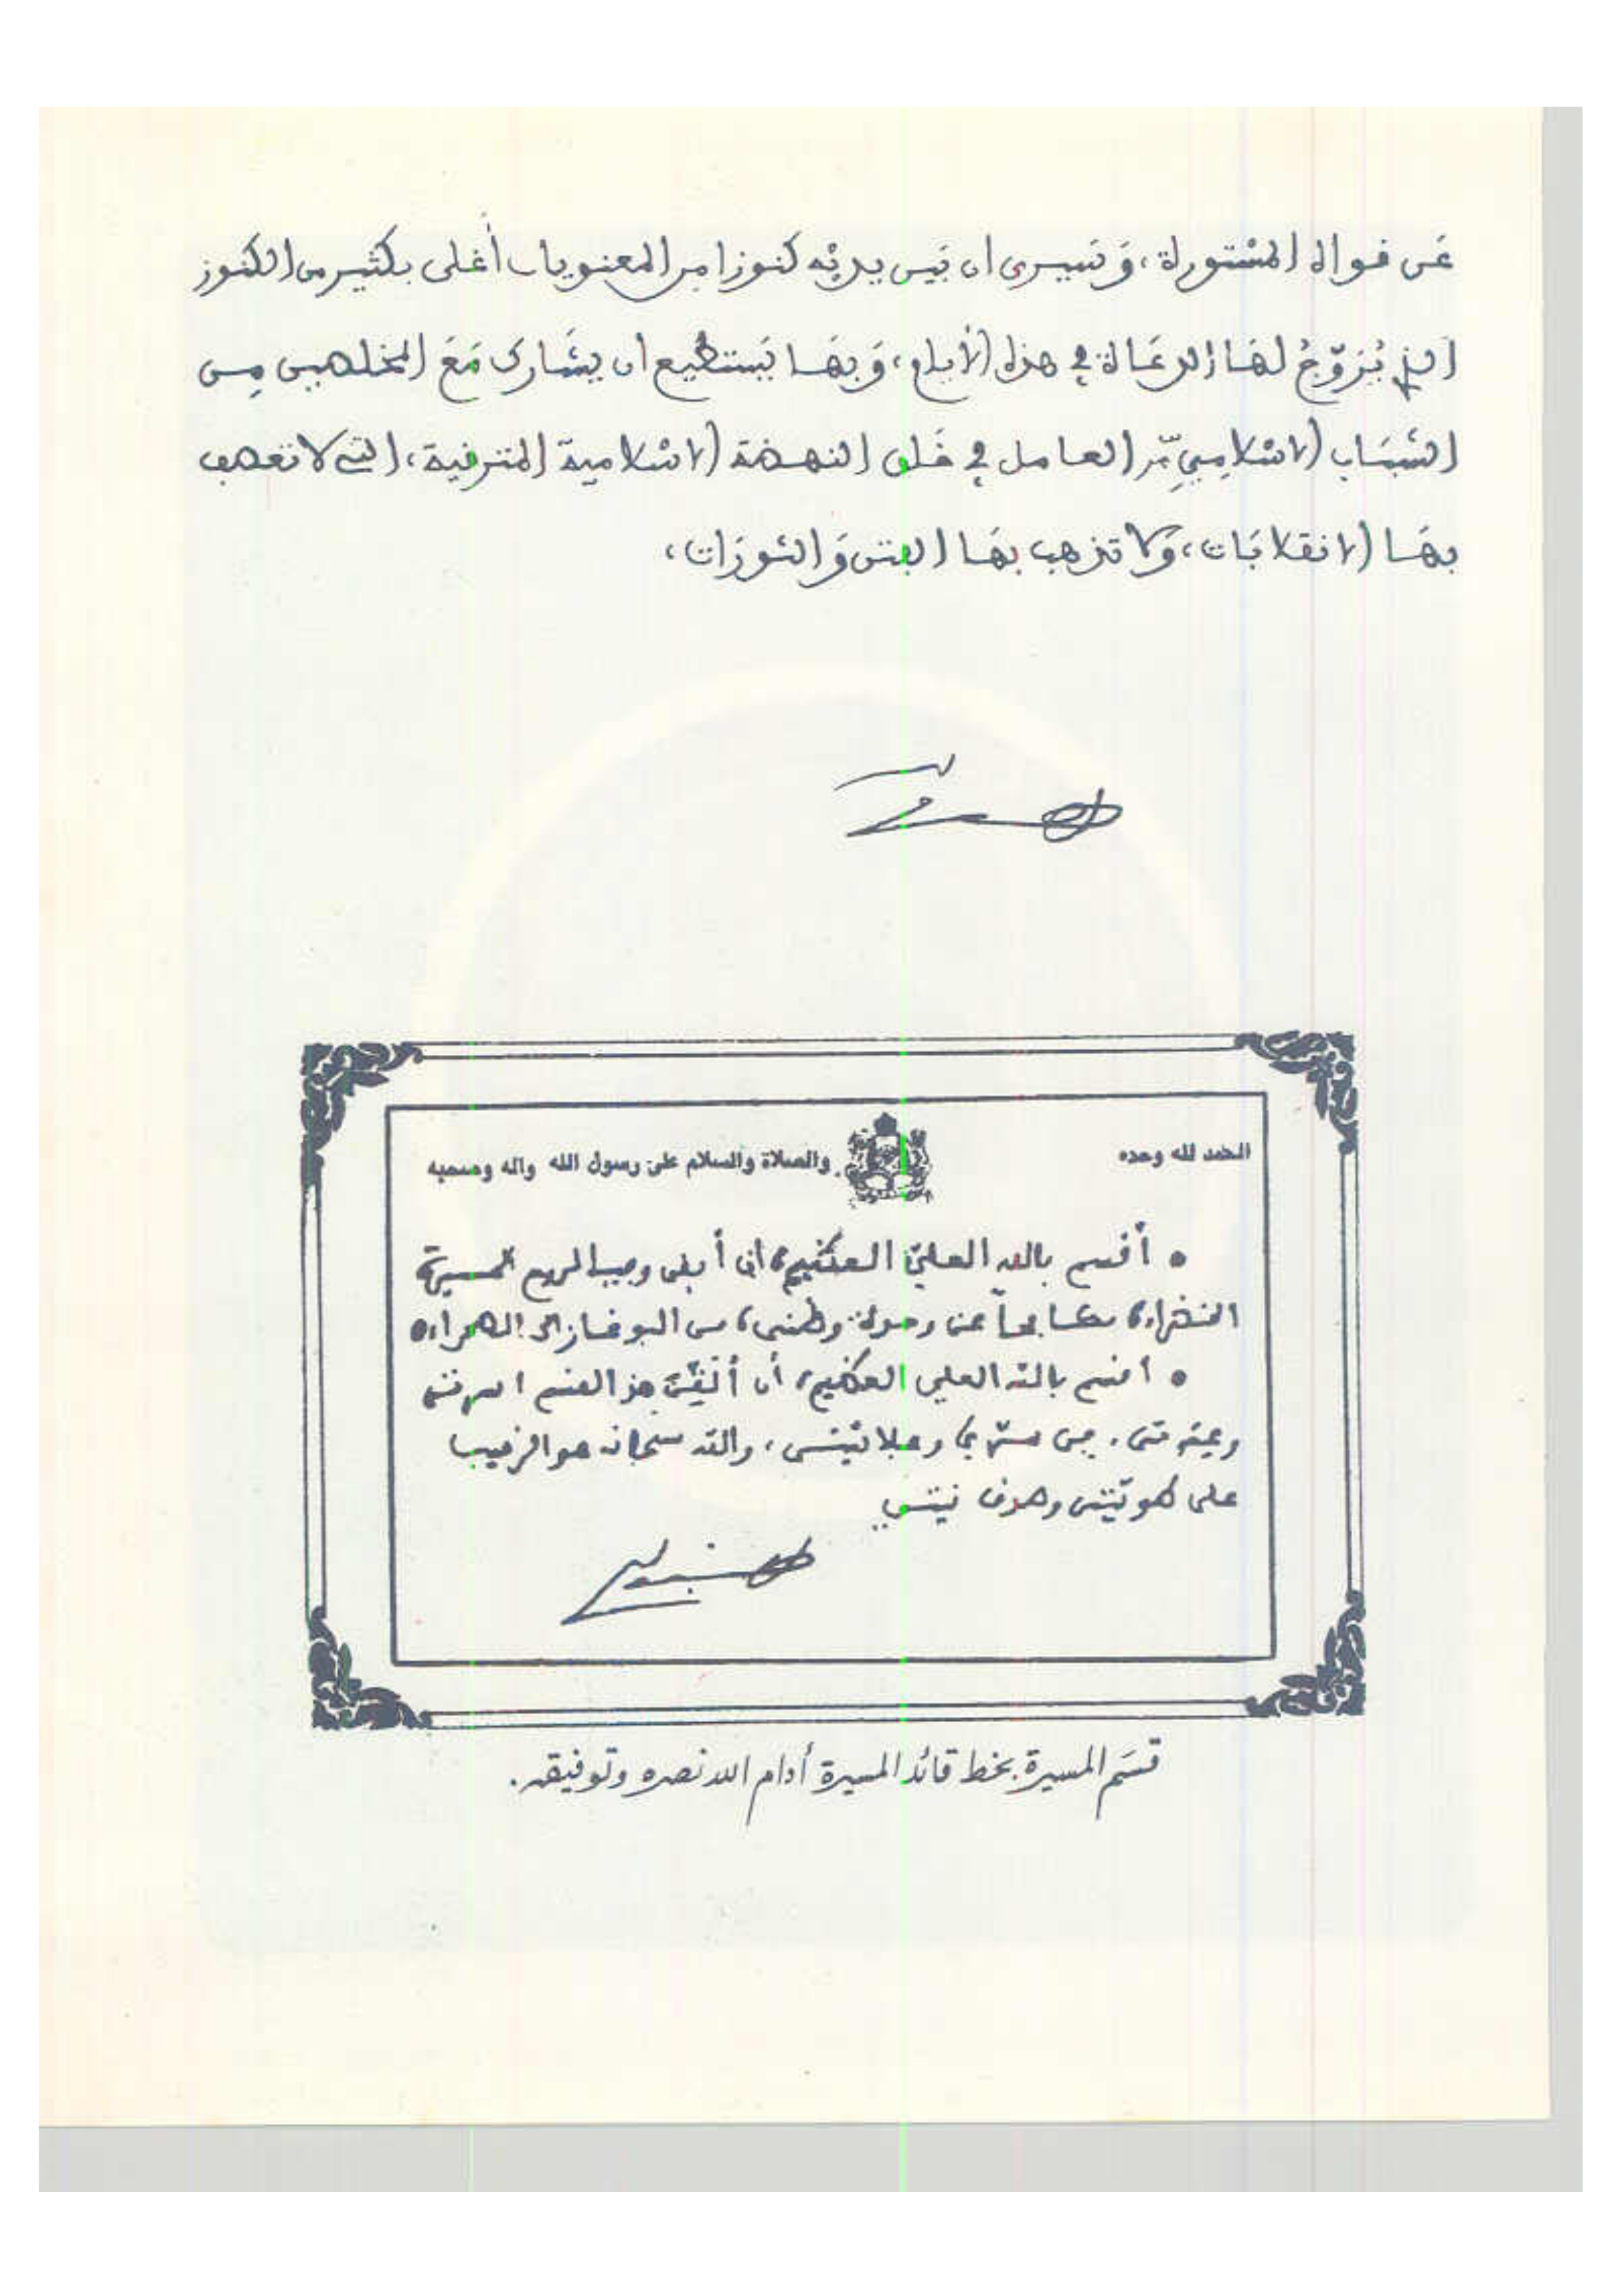 عَن قواه المسْتورلة، وَسَيرى ان بَين يديْه كنوزا من المعنويات أغلى بكثير من الكنوز
التي يُرَوّجُ لهَا الدعَاة في هذه الأيام، وَبهَا يَستطيع ان يشَارك مَعَ المخلصين مِن
الشبَاب الاسْلامِيّ العامل في خَلق النهضة الاسْلامية المترقية، التي لا تعصف
بهَا الانقلابَات، وَلا تذهب بهَا الفتن وَالثورَات،
الحمد لله وحده
والصلاة والسلام على رسول الله وآله وصحبه
• أقسم بالله العليّ العظيم، أن أبقى وفيا لروح المسيرة
الخضراء، مكافحاً عن وحدة وطني، من البوغاز الى الصحراء•
• أقسم بالله العلي العظيم، أن ألقّن هذا القسم أسرتي
وعترتي، في سرّي وعلانيتي، والله سبحانه هو الرقيب
على طويّتي وصدق نيتي
قسَم المسيرة بخط قائد المسيرة أدام الله نصره وتوفيقه.